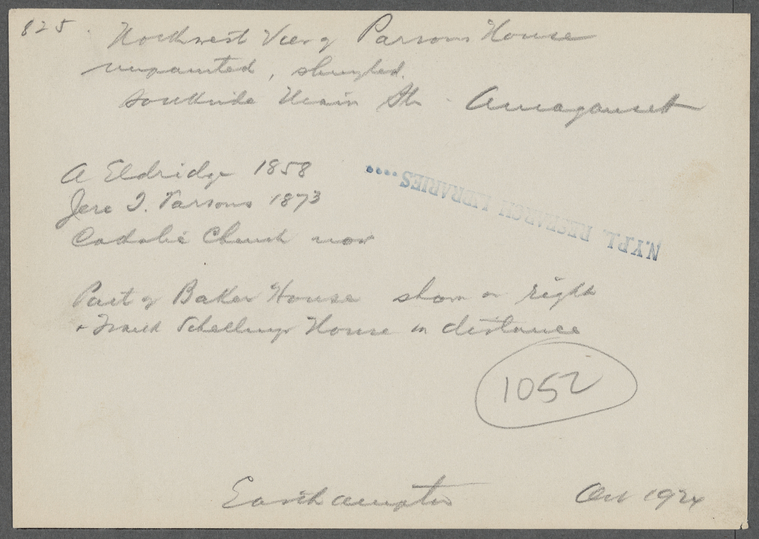 825.
Northwest View of Parsons House
unpainted, shingled.
southside Main St. Amagansett
A Eldridge 1858
Jere T. Parsons 1873
Catholic Church now
N.Y.P.L. RESEARCH LIBRARIES....
Part of Baker House show on right
+ Schellinger House in distance
1052
Easthampton Oct 1924